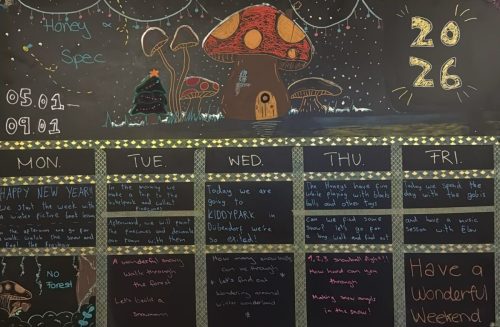 Honey &
Spec
05.01-
09.01
20
26
MON.
TUE.
WED.
THU.
FRI.
HAPPY NEW YEAR!!
We start the week with
a winter picture book
In the afternoon we go for a
walk, catch the snow and
No
Forest
In the morning we
make a trip in the
and collect
Afterward, we will paint
our treasures and decorate
the room with them
A wonderful snowy
walk through
the forest
Let's build a
snowman
Today we are
going to
KIDDYPARK in
Dübendorf we're
so excited!
How many snowballs
can we
Let's find out
Wandering around
winter wonderland
The Honeys have fun
while playing with
balls and other toys
Can we find some
snow? Let's go for
a long walk and find out
1,2,3 snowball fight!!!
How hard can you
through
Making snow angels
in the snow!
Today we spend the
day with the
and have a music
session with
Have a
Wonderful
Weekend